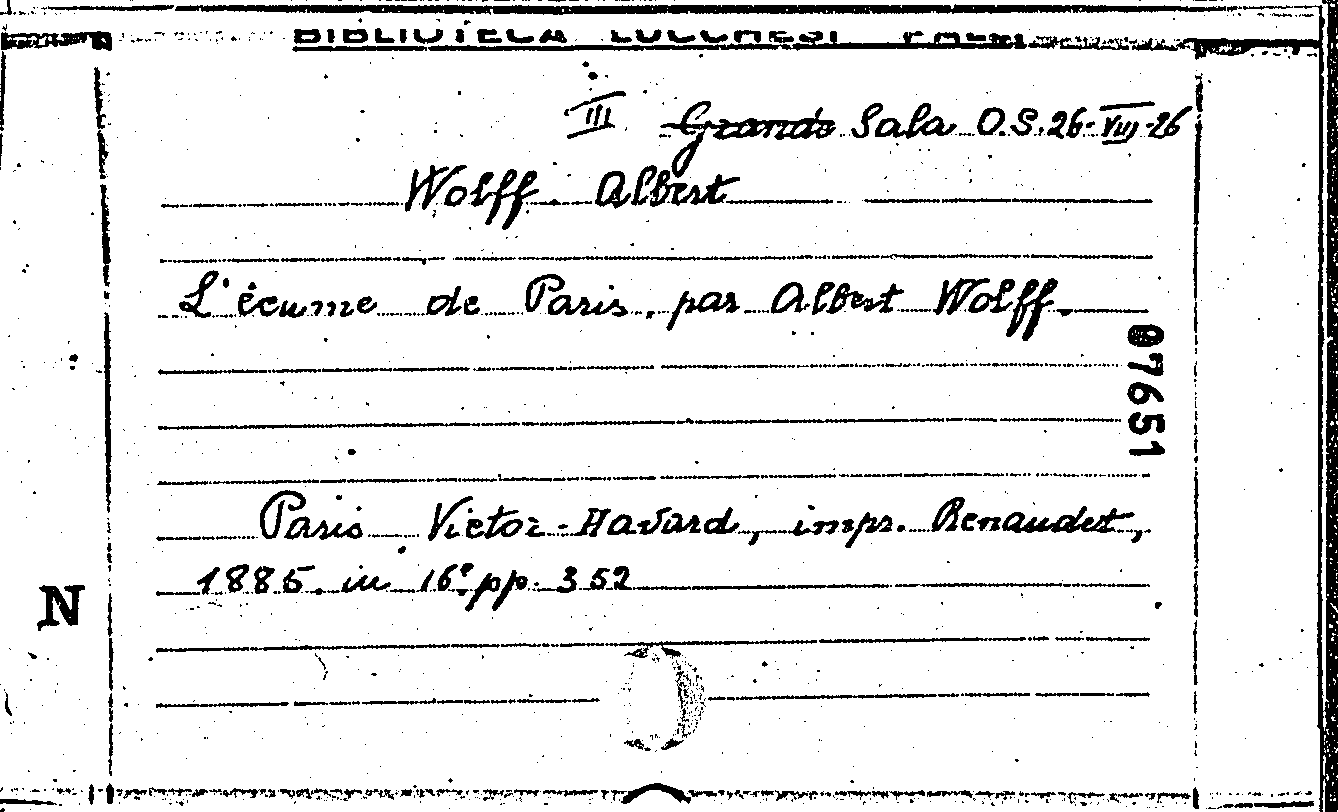 BIBLIOTECA LUCCHESI PALLI
III Grande Sala O.S. 26-VIII-26
Wolff. Albert
L'écume de Paris, par Albert Wolff.
07651
Paris Victor-Havard, impr. Renaudet,
1885. in 16º pp. 352
N